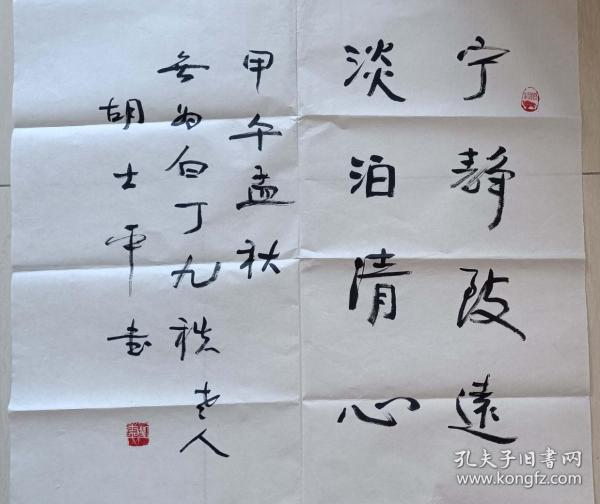 宁静致远
淡泊清心
甲午孟秋
无为白丁九秩老人
胡士平书
孔夫子旧书网
www.kongfz.com